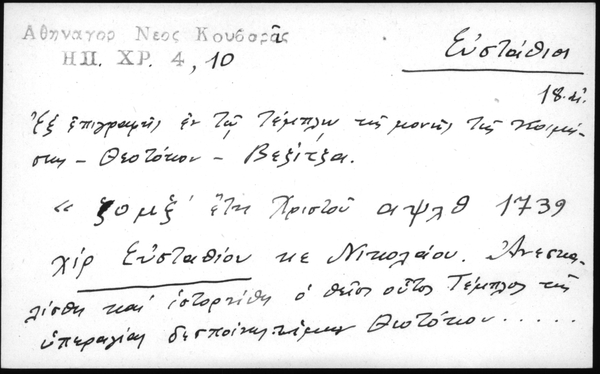 Αθηναγορ Νεος Κουβαρᾶς
ΗΠ. ΧΡ. 4, 10
Εὐστάθιοι
18.αἰ.
Ἐξ ἐπιγραφῆς ἐν τῷ Τέμπλῳ τῆς μονῆς τῆς Κοιμή-
σεως - Θεοτόκου - Βεξίτζα.
" ζομξ' ἔτη Χριστοῦ αψλθ 1739
χίρ Εὐσταθίου κε Νικολαίου. Ἀνεκα-
λίσθη καὶ ἱστορήθη ὁ θεῖος οὗτος Τέμπλος τῆς
ὑπεραγίας δεσποίνης ἡμῶν Θεοτόκου.....